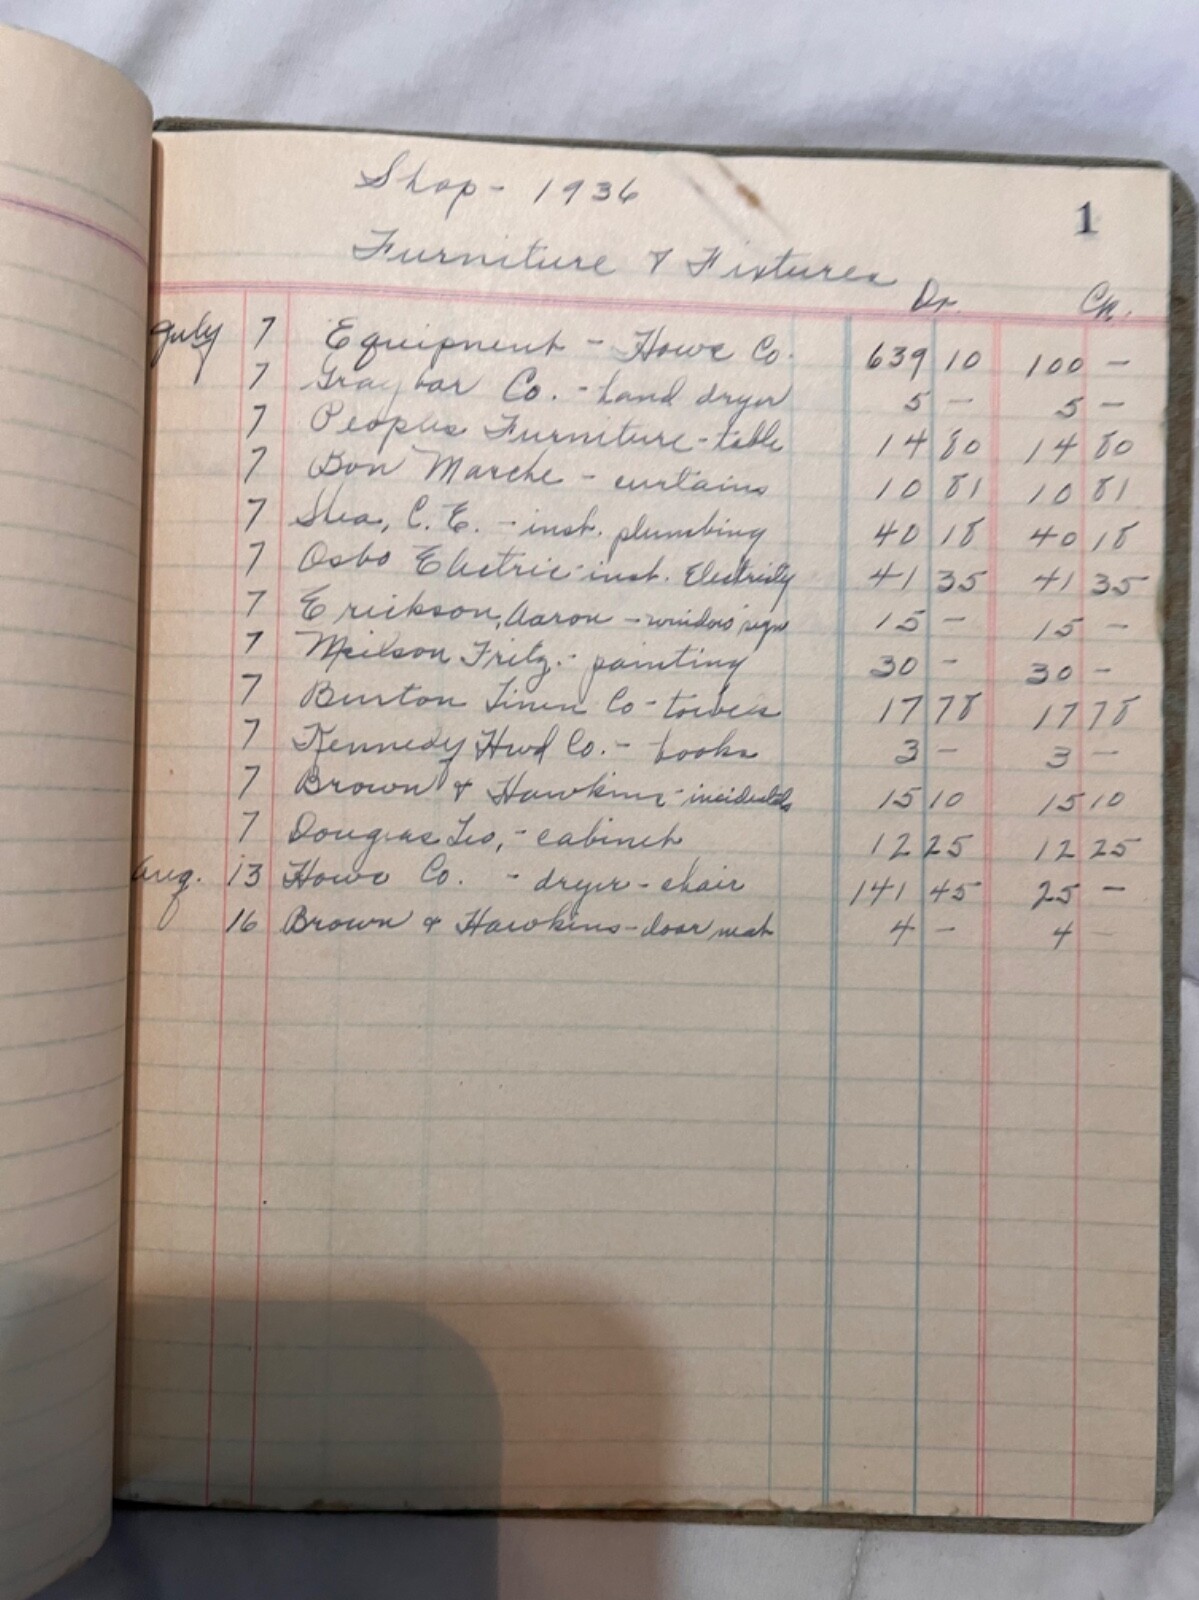 Shop - 1936
1
Furniture & Fixtures
Dr. Cr.
July 7 Equipment - Howe Co. 639 10 100 -
7 Graybar Co. - hand dryer 5 - 5 -
7 Peoples Furniture - table 14 80 14 80
7 Bon Marche - curtains 10 81 10 81
7 Shea, C. E. - inst. plumbing 40 18 40 18
7 Osbo Electric - inst. Electricity 41 35 41 35
7 Erickson, Aaron - window sign 15 - 15 -
7 Neilson Fritz. - painting 30 - 30 -
7 Burton Linen Co - towels 17 78 17 78
7 Kennedy Hwd Co. - hooks 3 - 3 -
7 Brown & Hawkins - incidentals 15 10 15 10
7 Douglas Leo, - cabinet 12 25 12 25
Aug. 13 Howe Co. - dryer - chair 141 45 25 -
16 Brown & Hawkins - door mat 4 - 4 -